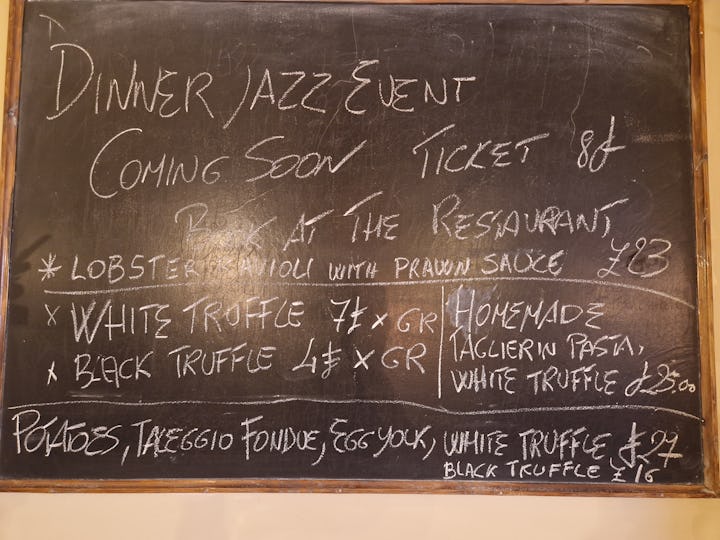 DINNER JAZZ EVENT
COMING SOON TICKET 8£
BOOK AT THE RESTAURANT
* LOBSTER RAVIOLI WITH PRAWN SAUCE £23
x WHITE TRUFFLE 7£ x GR
x BLACK TRUFFLE 4£ x GR
HOMEMADE
TAGLIERIN PASTA,
WHITE TRUFFLE £25.00
POTATOES, TALEGGIO FONDUE, EGG YOLK, WHITE TRUFFLE £27
BLACK TRUFFLE £16